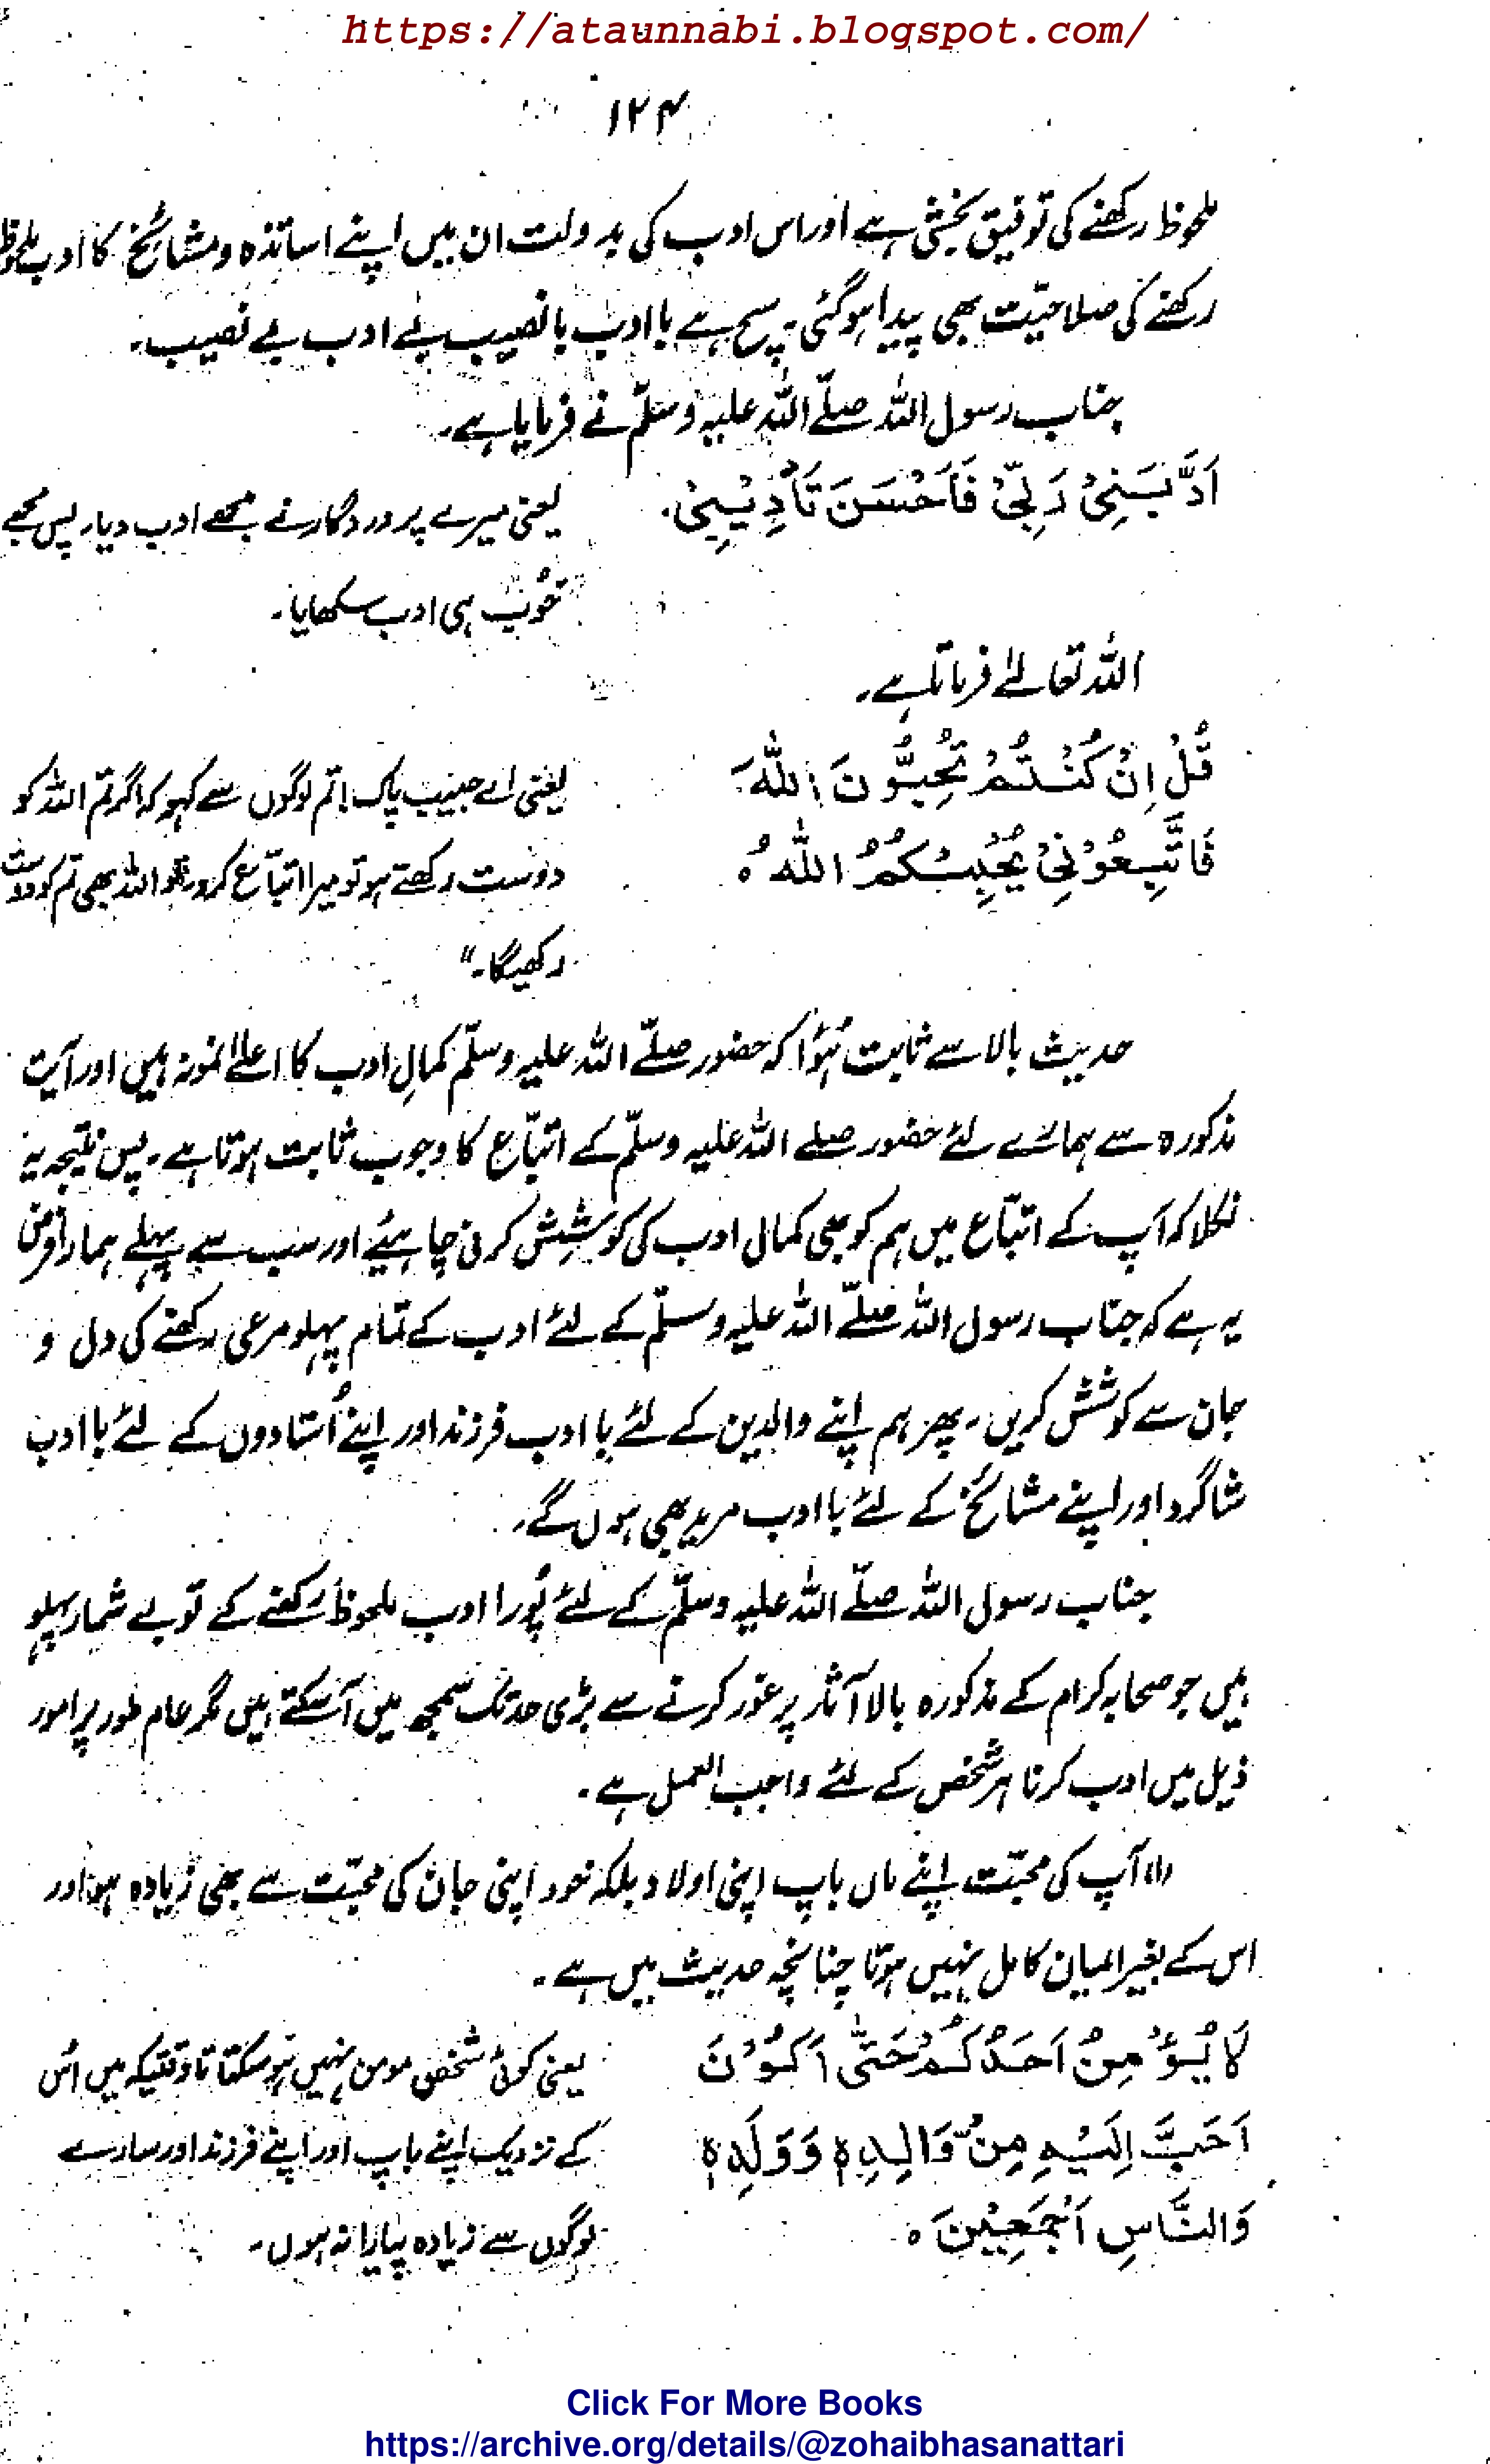 https://ataunnabi.blogspot.com/
۱۲۴
ملحوظ رکھنے کی توفیق بخشی ہے اور اس ادب کی بدولت ان میں اپنے اساتذہ و مشائخ کا ادب ملحوظ
رکھنے کی صلاحیّت بھی پیدا ہوگئی۔ سچ ہے با ادب با نصیب بے ادب بے نصیب۔
جناب رسول اللہ صلّے اللہ علیہ وسلّم نے فرمایا ہے۔
اَدَّبَنِیْ رَبِّیْ فَاَحْسَنَ تَأْدِیْبِیْ۔
یعنی میرے پروردگار نے مجھے ادب دیا۔ پس مجھے
خُوب ہی ادب سکھایا۔
اللہ تعالےٰ فرماتا ہے۔
قُلْ اِنْ کُنْتُمْ تُحِبُّوْنَ اللّٰہَ
فَاتَّبِعُوْنِیْ یُحْبِبْکُمُ اللّٰہُ ہ
یعنی اے حبیب پاک! تم لوگوں سے کہو کہ اگر تم اللہ کو
دوست رکھتے ہو تو میرا اتّباع کرو۔ تو اللہ بھی تم کو دوست
رکھیگا۔"
حدیث بالا سے ثابت ہُوا کہ حضور صلّے اللہ علیہ وسلّم کمالِ ادب کا اعلےٰ نمونہ ہیں اور آیت
مذکورہ سے ہمارے لئے حضور صلے اللہ علیہ وسلّم کے اتّباع کا وجوب ثابت ہوتا ہے۔ پس نتیجہ یہ
نکلا کہ آپ کے اتّباع میں ہم کو بھی کمال ادب کی کوشِش کرنی چاہیئے اور سب سے پہلے ہمارا فرض
یہ ہے کہ جناب رسول اللہ صلّے اللہ علیہ وسلّم کے لئے ادب کے تمام پہلو مرعی رکھنے کی دل و
جان سے کوشش کریں۔ پھر ہم اپنے والدین کے لئے با ادب فرزند اور اپنے اُستادوں کے لئے با ادب
شاگرد اور اپنے مشائخ کے لئے با ادب مرید بھی ہوں گے۔
جناب رسول اللہ صلّے اللہ علیہ وسلّم کے لئے پُورا ادب ملحوظ رکھنے کے تو بے شمار پہلو
ہیں جو صحابہ کرام کے مذکورہ بالا آثار پر غور کرنے سے بڑی حد تک سمجھ میں آسکتے ہیں مگر عام طور پر امور
ذیل میں ادب کرنا ہر شخص کے لئے واجب العمل ہے۔
(۱) آپ کی محبّت اپنے ماں باپ اپنی اولاد بلکہ خود اپنی جان کی محبّت سے بھی زیادہ ہو اور
اس کے بغیر ایمان کامل نہیں ہوتا چنانچہ حدیث میں ہے۔
لَا یُؤْمِنُ اَحَدُکُمْ حَتّٰی اَکُوْنَ
اَحَبَّ اِلَیْہِ مِنْ وَّالِدِہٖ وَوَلَدِہٖ
وَالنَّاسِ اَجْمَعِیْنَ ہ
یعنی کوئی شخص مومن نہیں ہوسکتا تاوقتیکہ میں اُس
کے نزدیک اپنے باپ اور اپنے فرزند اور سارے
لوگوں سے زیادہ پیارا نہ ہوں۔
Click For More Books
https://archive.org/details/@zohaibhasanattari